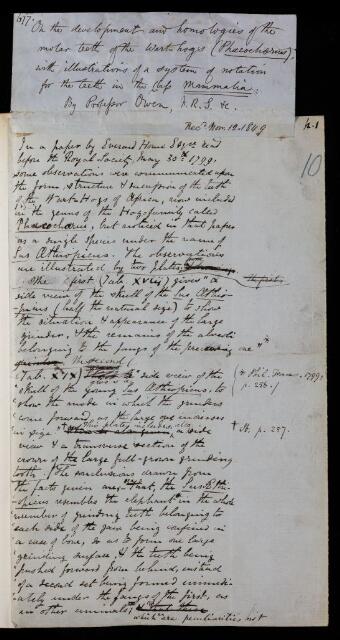 677.
On the development and homologies of the
molar teeth of the Wart-hogs (Phacochærus),
with illustrations of a system of notation
for the teeth in the class Mammalia.
By Professor Owen, F.R.S. &c.
Recd. Nov. 12. 1849
10
In a paper by Everard Home Esqre. read
before the Royal Society, May 30th. 1799.
some observations were communicated upon
the form, structure & succession of the teeth
of the Wart-Hogs of Africa, now included
in the genus of the Hog-family called
Phacochærus, but noticed in that paper
as a single species under the name of
Sus Æthiopicus. The observations
are illustrated by two plates,
the first
(Tab. XVIII) gives "a
side view of the skull of the Sus Æthio-
picus (half the natural size) to show
the situation & appearance of the large
grinder, & the remains of the alveoli
belonging to the fangs of the preceding one"*
The second
(Tab. XIX) gives "a side view of the
(* Phil. Trans. 1799,
p. 256.)
skull of the young Sus Æthiopicus, to
show the mode in which the grinders
come forward, as the large one increases
in size" † This plate includes, also, a side
† Ib. p. 257.
view & a transverse section of the
crown of the large full-grown grinding
tooth. The conclusions drawn from
the facts given are, "that, the Sus Æthi-
opicus resembles the elephant in the whole
number of grinding teeth belonging to
each side of the jaw being confined in
a case of bone, so as to form one large
grinding surface, & the teeth being
pushed forward from behind, instead
of a second set being formed immedi-
ately under the fangs of the first, as
in other animals,"
which are peculiarities not